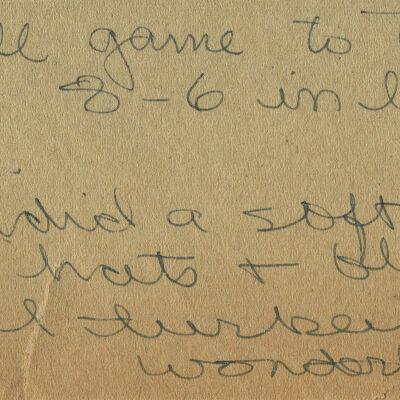 ll game to
8-6 in l
did a soft
hats + bl
l turkey
wonder